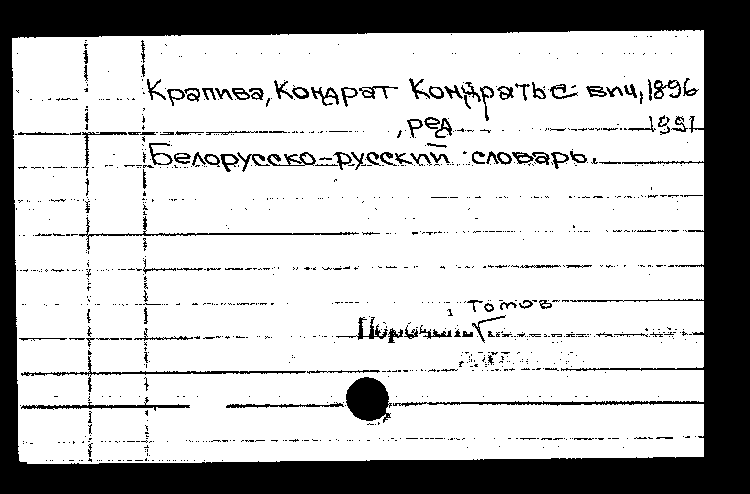 Крапива, Кондрат Кондратье вич, 1896
, ред 1991
Белорусско-русский словарь.
томов